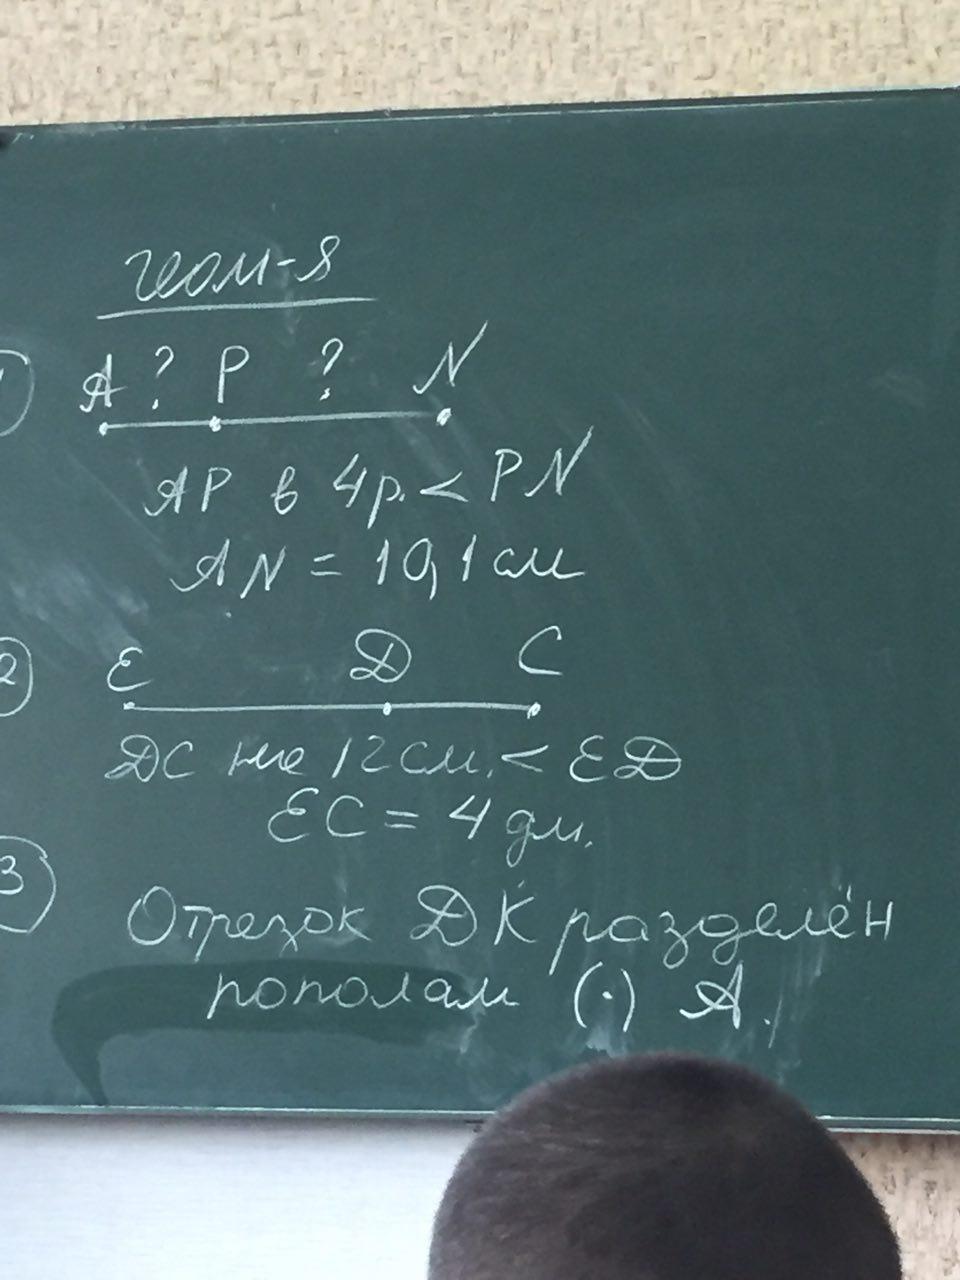 геом-я
1 A ? P ? N
AP в 4р. < PN
AN = 10,1 см
2 E D C
DC на 12 см. < ED
EC = 4 дм.
3 Отрезок DK разделён
пополам (·) A.